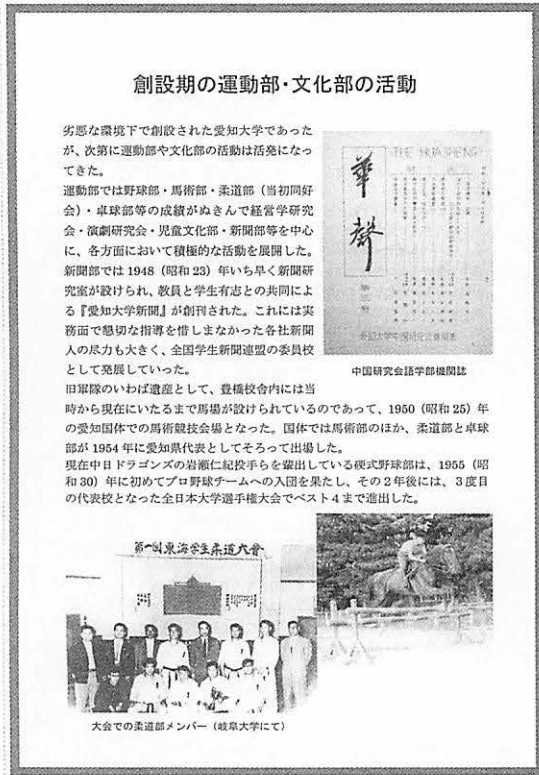 創設期の運動部・文化部の活動
劣悪な環境下で創設された愛知大学であった
が、次第に運動部や文化部の活動は活発になっ
てきた。
運動部では野球部・馬術部・柔道部（当初同好
会）・卓球部等の成績がぬきんで経営学研究
会・演劇研究会・児童文化部・新聞部等を中心
に、各方面において積極的な活動を展開した。
新聞部では 1948（昭和 23）年いち早く新聞研
究室が設けられ、教員と学生有志との共同によ
る『愛知大学新聞』が創刊された。これには実
務面で懇切な指導を惜しまなかった各社新聞
人の尽力も大きく、全国学生新聞連盟の委員校
として発展していった。
旧軍隊のいわば遺産として、豊橋校舎内には当
時から現在にいたるまで馬場が設けられているのであって、1950（昭和 25）年
の愛知国体での馬術競技会場となった。国体では馬術部のほか、柔道部と卓球
部が 1954 年に愛知県代表としてそろって出場した。
現在中日ドラゴンズの岩瀬仁紀投手らを輩出している硬式野球部は、1955（昭
和 30）年に初めてプロ野球チームへの入団を果たし、その２年後には、３度目
の代表校となった全日本大学選手権大会でベスト４まで進出した。
THE HUASHENG
華聲
中国研究会語学部機関誌
第一回東海学生柔道大會
大会での柔道部メンバー（岐阜大学にて）